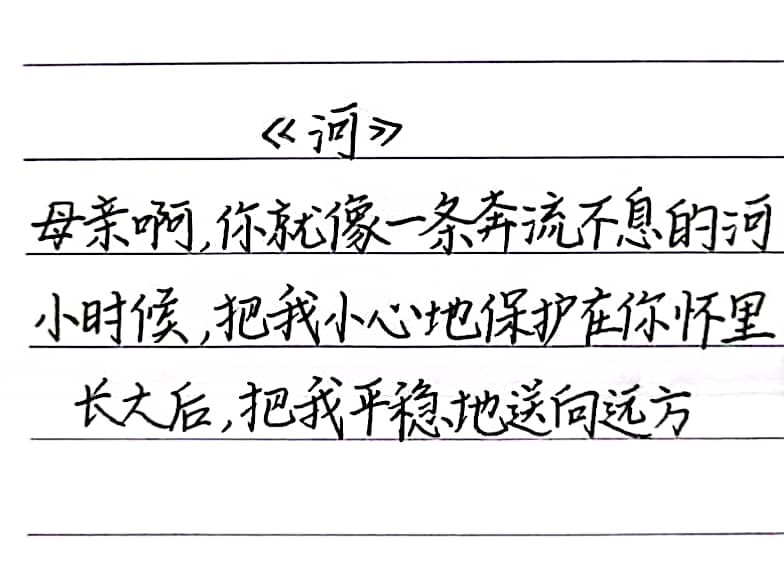 《河》
母亲啊,你就像一条奔流不息的河
小时候,把我小心地保护在你怀里
长大后,把我平稳地送向远方